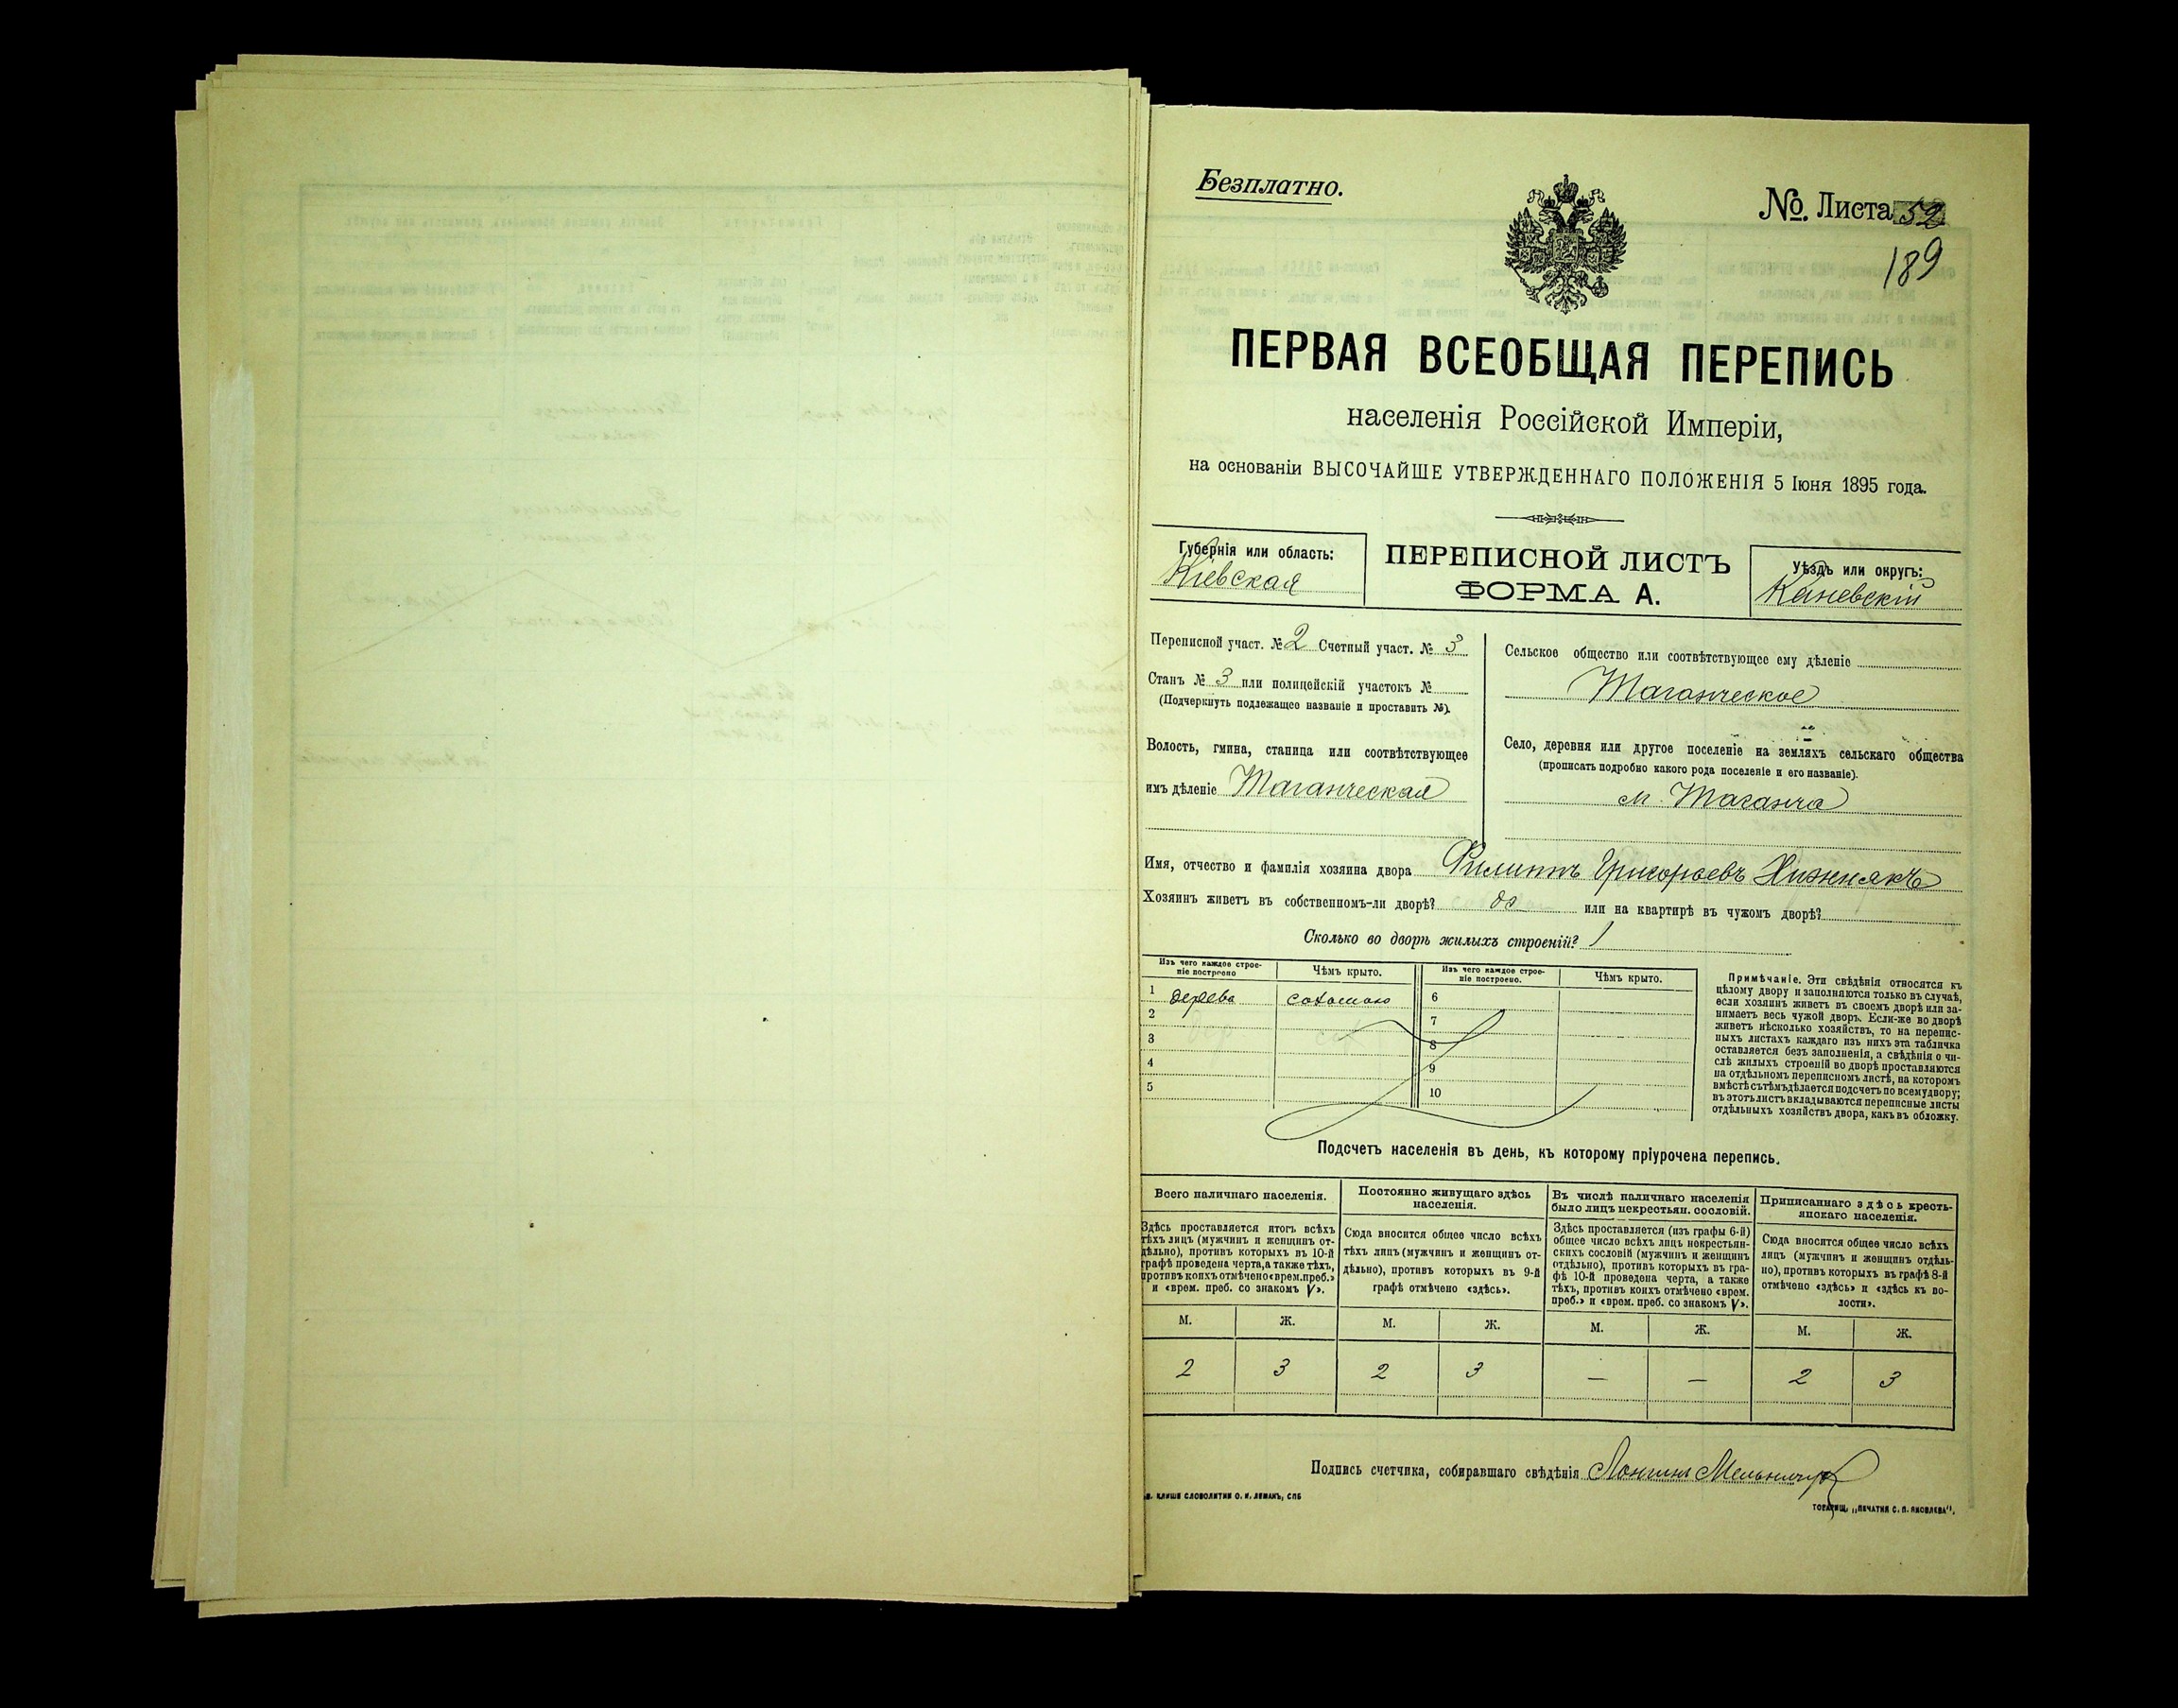 Безплатно.
№. Листа 52
189
ПЕРВАЯ ВСЕОБЩАЯ ПЕРЕПИСЬ
населенія Россійской Имперіи,
на основаніи ВЫСОЧАЙШЕ УТВЕРЖДЕННАГО ПОЛОЖЕНІЯ 5 Іюня 1895 года.
Губернія или область:
Кіевская
ПЕРЕПИСНОЙ ЛИСТЪ
ФОРМА А.
Уѣздъ или округъ:
Каневскій
Переписной участ. № 2 Счетный участ. № 3
Станъ № 3 или полицейскій участокъ №
(Подчеркнуть подлежащее названіе и проставить №).
Волость, гмина, станица или соотвѣтствующее
имъ дѣленіе Таганческая
Сельское общество или соотвѣтствующее ему дѣленіе
Таганческое
Село, деревня или другое поселеніе на земляхъ сельскаго общества
(прописать подробно какого рода поселеніе и его названіе).
м. Таганча
Имя, отчество и фамилія хозяина двора Филиппъ Григорьевъ Хижнякъ
Хозяинъ живетъ въ собственномъ-ли дворѣ? да или на квартирѣ въ чужомъ дворѣ?
Сколько во дворѣ жилыхъ строеній? 1
Изъ чего каждое строе-
ніе построено
Чѣмъ крыто.
Изъ чего каждое строе-
ніе построено.
Чѣмъ крыто.
1 дерева соломою 6
2 7
3 8
4 9
5 10
Примѣчаніе. Эти свѣдѣнія относятся къ
цѣлому двору и заполняются только въ случаѣ,
если хозяинъ живетъ въ своемъ дворѣ или за-
нимаетъ весь чужой дворъ. Если-же во дворѣ
живетъ нѣсколько хозяйствъ, то на перепис-
ныхъ листахъ каждаго изъ нихъ эта табличка
оставляется безъ заполненія, а свѣдѣнія о чи-
слѣ жилыхъ строеній во дворѣ проставляются
на отдѣльномъ переписномъ листѣ, на которомъ
вмѣстѣ съ тѣмъ дѣлается подсчетъ по всему двору;
въ этотъ листъ вкладываются переписные листы
отдѣльныхъ хозяйствъ двора, какъ въ обложку.
Подсчетъ населенія въ день, къ которому пріурочена перепись.
Всего наличнаго населенія.
Здѣсь проставляется итогъ всѣхъ
тѣхъ лицъ (мужчинъ и женщинъ от-
дѣльно), противъ которыхъ въ 10-й
графѣ проведена черта, а также тѣхъ,
противъ коихъ отмѣчено «врем. преб.»
и «врем. преб. со знакомъ V».
Постоянно живущаго здѣсь
населенія.
Сюда вносится общее число всѣхъ
тѣхъ лицъ (мужчинъ и женщинъ от-
дѣльно), противъ которыхъ въ 9-й
графѣ отмѣчено «здѣсь».
Въ числѣ наличнаго населенія
было лицъ некрестьян. сословій.
Здѣсь проставляется (изъ графы 6-й)
общее число всѣхъ лицъ некрестьян-
скихъ сословій (мужчинъ и женщинъ
отдѣльно), противъ которыхъ въ гра-
фѣ 10-й проведена черта, а также
тѣхъ, противъ коихъ отмѣчено «врем.
преб.» и «врем. преб. со знакомъ V».
Приписаннаго здѣсь кресть-
янскаго населенія.
Сюда вносится общее число всѣхъ
лицъ (мужчинъ и женщинъ отдѣль-
но), противъ которыхъ въ графѣ 8-й
отмѣчено «здѣсь» и «здѣсь къ во-
лости».
М. Ж. М. Ж. М. Ж. М. Ж.
2 3 2 3 — — 2 3
Подпись счетчика, собиравшаго свѣдѣнія Лонгинъ Мельничук
КЛИШЕ СЛОВОЛИТНИ О. И. ЛЕМАНЪ, СПБ
ТОВАРИЩ. „ПЕЧАТНЯ С. П. ЯКОВЛЕВА“.